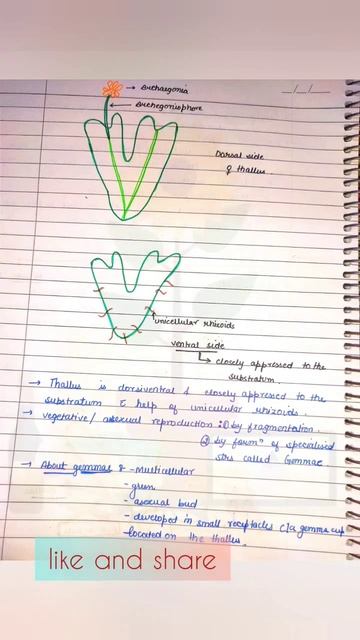 → Archaegonia
__/__/__
← Archegoniophore
Dorsal side
of thallus.
unicellular rhizoids
ventral side
↳ closely appresed to the
substratum.
→ Thallus is dorsiventral & closely appresed to the
substratum c̄ help of unicellular rhizoids.
→ vegetative/ asexual reproduction :① by fragmentation.
② by formⁿ of specialised
strs called Gemmae
→ About gemmae :- Multicellular
- green
- asexual bud
- developed in small receptacles c/a gemma cup
- located on the thallus.
like and share